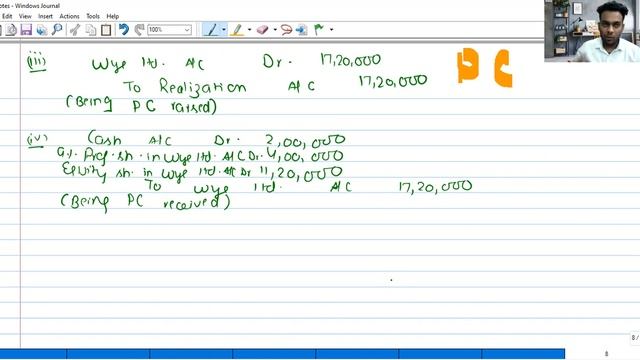 otes - Windows Journal
Edit View Insert Actions Tools Help
100%
(iii) Wye ltd. A/c Dr. 17,20,000
To Realization A/c 17,20,000
(Being PC raised)
(iv) Cash A/c Dr. 2,00,000
Pref. sh. in Wye ltd. A/c Dr. 4,00,000
Equity sh. in Wye ltd. A/c Dr. 11,20,000
To Wye ltd. A/c 17,20,000
(Being PC received)
8 /
8